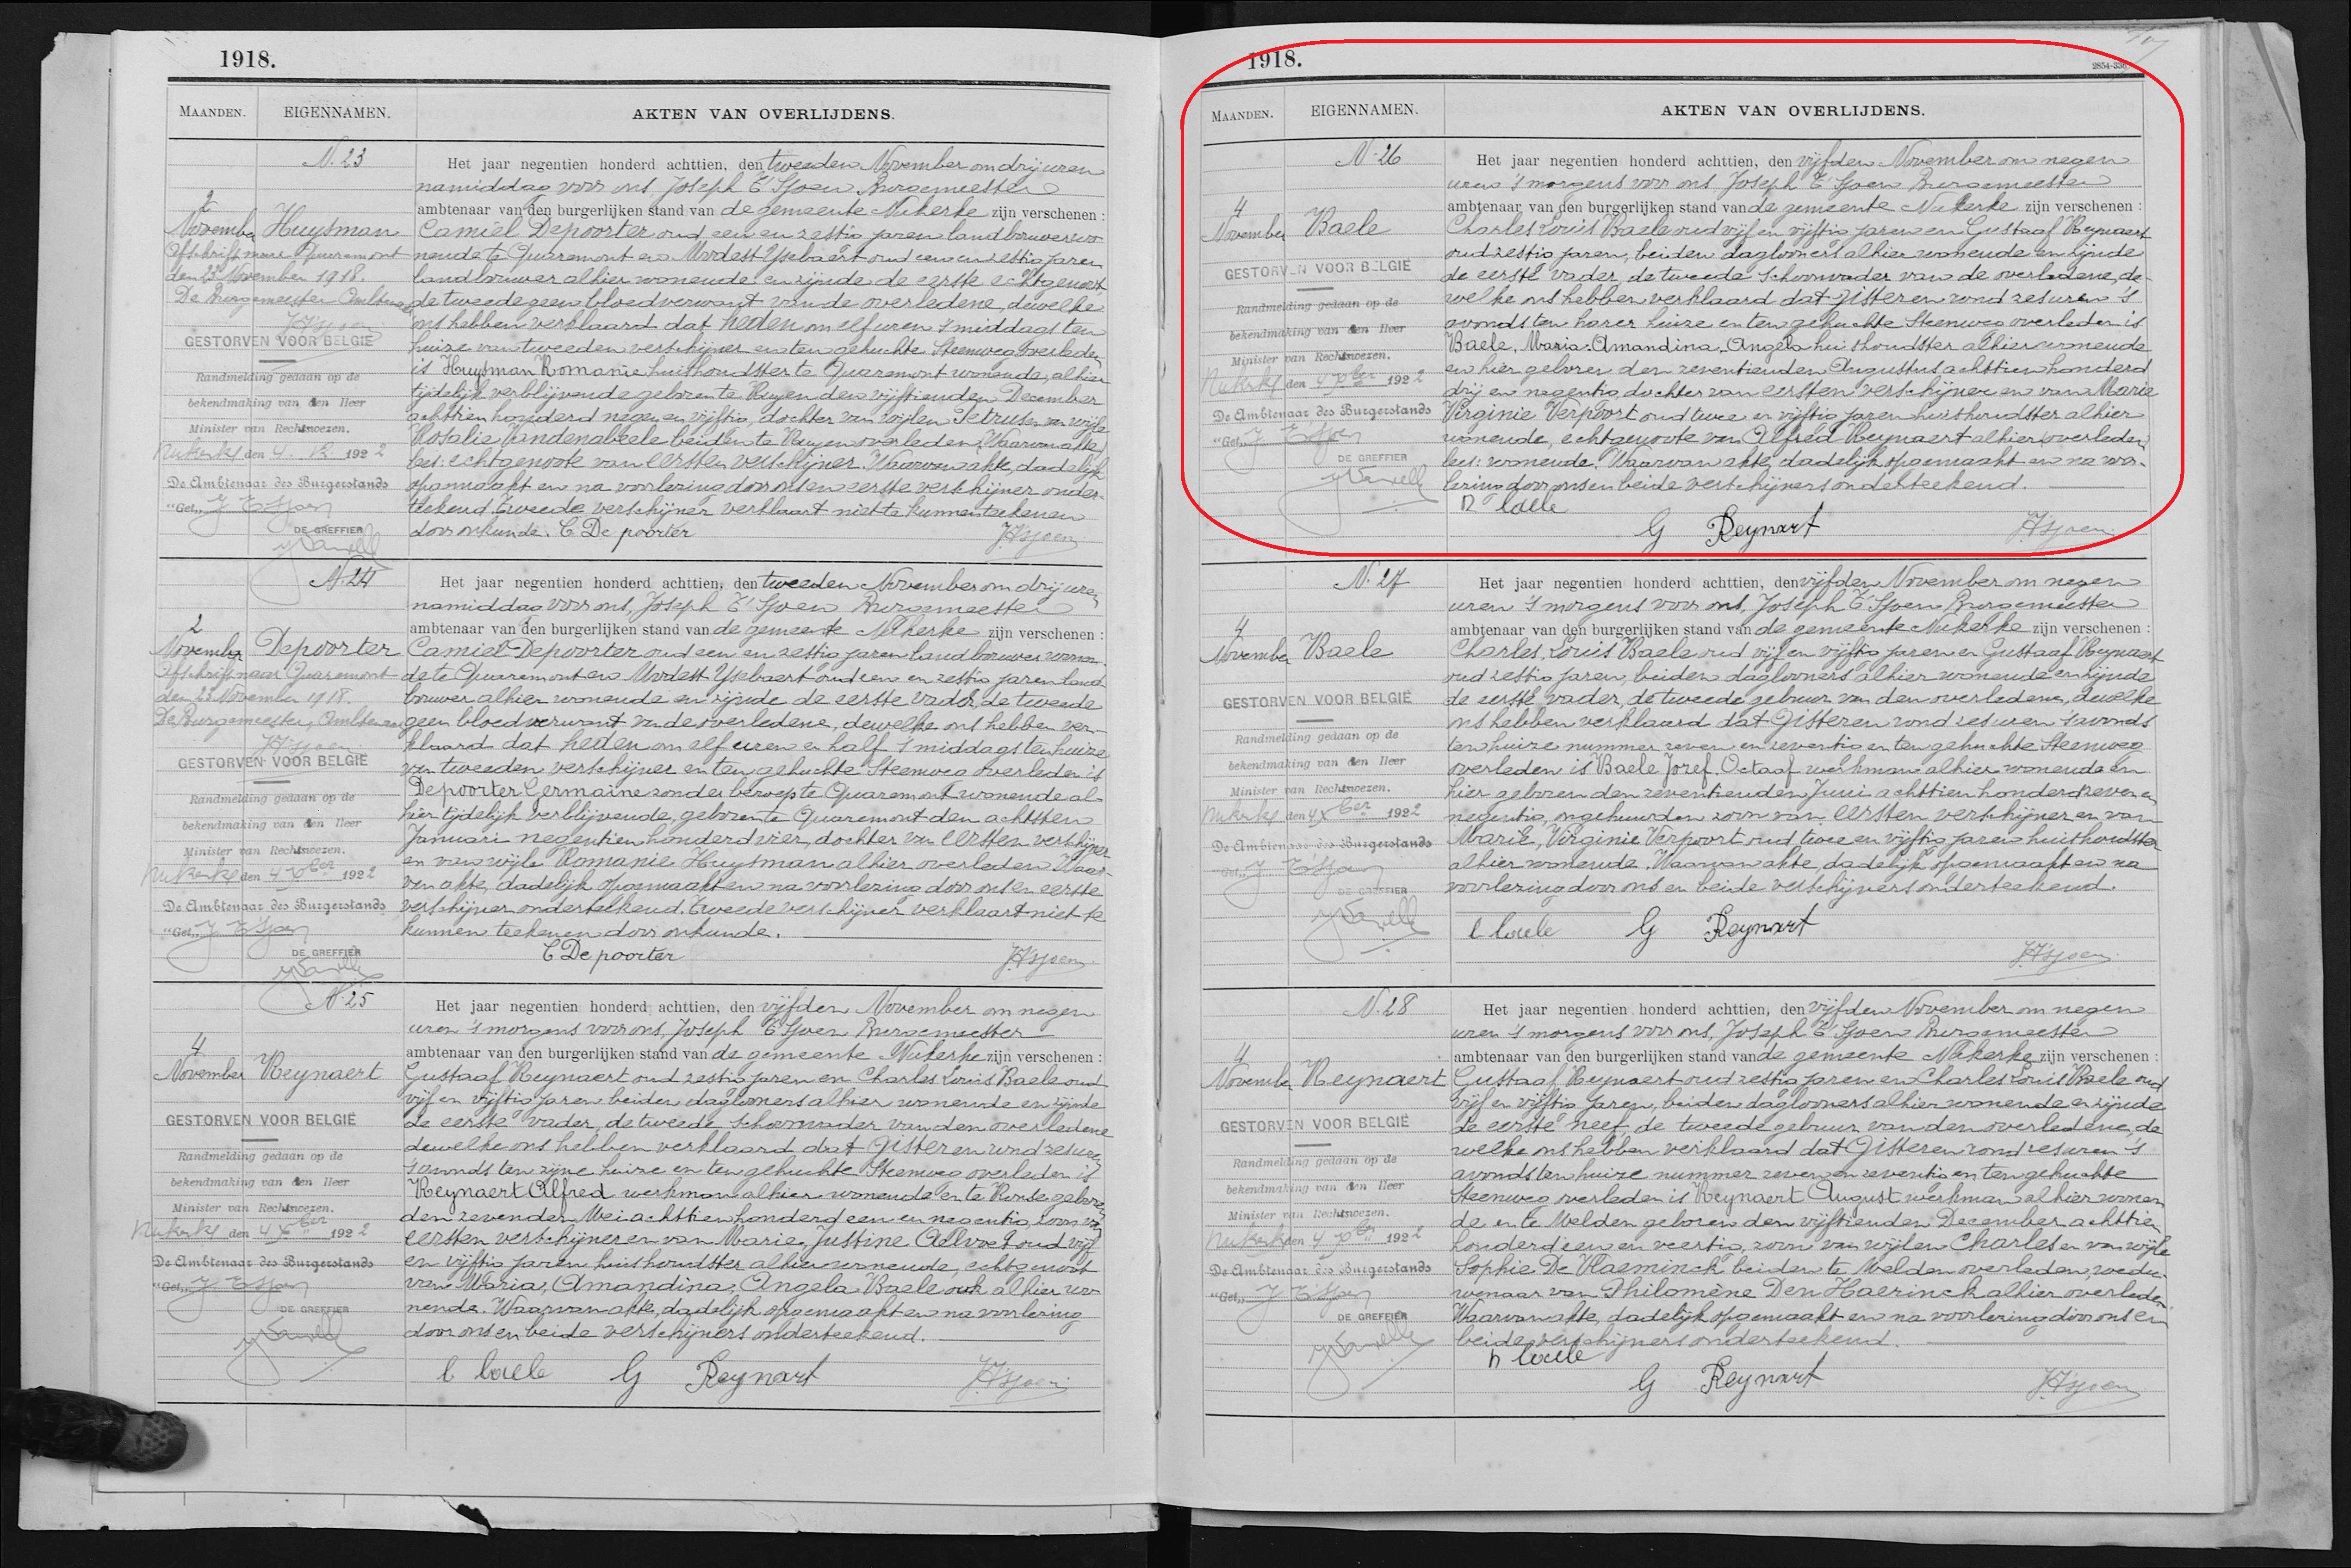 1918.
MAANDEN.
EIGENNAMEN.
AKTEN VAN OVERLIJDENS.
N. 23
Het jaar negentien honderd achttien, den tweeden November om drij uren
namiddag voor ons, Joseph T'Sjoen Burgemeester
ambtenaar van den burgerlijken stand van de gemeente Nukerke zijn verschenen :
2
November
Huysman
Camiel Depoorter oud een en zestig jaren landbouwer wo-
nende te Quaremont en Modest Ysebaert oud een en zestig jaren
landbouwer alhier wonende en zijnde de eerste echtgenoot
de tweede geen bloedverwant van de overledene, dewelke
ons hebben verklaard dat heden om elf uren 's middags ten
huize van tweeden verschijner en ten gehuchte Steenweg overleden
is Huysman Romanie huishoudster te Quaremont wonende, alhier
tijdelijk verblijvende geboren te Ruyen den vijftienden December
achttien honderd negen en vijftig, dochter van wijlen Petrus en van wijle
Rosalie Vandenabeele beiden te Ruyen overleden. (Waarvan akte)
lees: echtgenoote van eersten verschijner. Waarvan akte, dadelijk
opgemaakt en na voorlezing door ons en eerste verschijner onder-
teekend. Tweede verschijner verklaart niet te kunnen teekenen
door onkunde. C De poorter
JT'sjoen
Afschrift naar Quaremont
den 23 November 1918.
De Burgemeester Ambtenaar
JT'sjoen
GESTORVEN VOOR BELGIË
Randmelding gedaan op de
bekendmaking van den Heer
Minister van Rechtwezen.
Nukerke den 4 Xber 1922
De Ambtenaar des Burgerstands
"Get." J T'Sjoen
DE GREFFIER
N. 24
Het jaar negentien honderd achttien, den tweeden November om drij uren
namiddag voor ons, Joseph T'Sjoen Burgemeester
ambtenaar van den burgerlijken stand van de gemeente Nukerke zijn verschenen :
2
November
Depoorter
Camiel Depoorter oud een en zestig jaren landbouwer wonen-
de te Quaremont en Modest Ysebaert oud een en zestig jaren land-
bouwer alhier wonende en zijnde de eerste vader, de tweede
geen bloedverwant van de overledene, dewelke ons hebben ver-
klaard dat heden om elf uren en half 's middags ten huize
van tweeden verschijner en ten gehuchte Steenweg overleden is
Depoorter Germaine zonder beroep te Quaremont wonende al-
hier tijdelijk verblijvende, geboren te Quaremont den achtsten
Januari negentien honderd vier, dochter van eersten verschijner
en van wijle Romanie Huysman alhier overleden. Waar-
van akte, dadelijk opgemaakt en na voorlezing door ons en eerste
verschijner onderteekend. Tweede verschijner verklaart niet te
kunnen teekenen door onkunde.
C De poorter
JT'sjoen
Afschrift naar Quaremont
den 23 November 1918.
De Burgemeester, Ambtenaar
JT'sjoen
GESTORVEN VOOR BELGIË
Randmelding gedaan op de
bekendmaking van den Heer
Minister van Rechtwezen.
Nukerke den 4 Xber 1922
De Ambtenaar des Burgerstands
"Get." J T'Sjoen
DE GREFFIER
N. 25
Het jaar negentien honderd achttien, den vijfden November om negen
uren 's morgens voor ons, Joseph T'Sjoen Burgemeester
ambtenaar van den burgerlijken stand van de gemeente Nukerke zijn verschenen :
4
November
Reynaert
Gustaaf Reynaert oud zestig jaren en Charles Louis Baele oud
vijf en vijftig jaren beiden daglooners alhier wonende en zijnde
de eerste vader, de tweede schoonvader van den overledene
dewelke ons hebben verklaard dat gisteren rond zes uren
's avonds ten zijne huize en ten gehuchte Steenweg overleden is
Reynaert Alfred werkman alhier wonende en te Ronse geboren
den zevenden Mei achttien honderd een en negentig, zoon van
eersten verschijner en van Marie, Justine Aelvoet oud vijf
en vijftig jaren huishoudster alhier wonende, echtgenoot
van Maria, Amandina, Angela Baele ook alhier wo-
nende. Waarvan akte, dadelijk opgemaakt en na voorlezing
door ons en beide verschijners onderteekend.
C baele G Reynart
JT'sjoen
GESTORVEN VOOR BELGIË
Randmelding gedaan op de
bekendmaking van den Heer
Minister van Rechtwezen.
Nukerke den 4 Xber 1922
De Ambtenaar des Burgerstands
"Get." J T'Sjoen
DE GREFFIER
1918.
2854-336
MAANDEN.
EIGENNAMEN.
AKTEN VAN OVERLIJDENS.
N. 26
Het jaar negentien honderd achttien, den vijfden November om negen
uren 's morgens voor ons, Joseph T'Sjoen Burgemeester
ambtenaar van den burgerlijken stand van de gemeente Nukerke zijn verschenen :
4
November
Baele
Charles Louis Baele oud vijf en vijftig jaren en Gustaaf Reynaert
oud zestig jaren, beiden daglooners alhier wonende en zijnde
de eerste vader, de tweede schoonvader van de overledene, de-
welke ons hebben verklaard dat gisteren rond zes uren 's
avonds ten harer huize en ten gehuchte Steenweg overleden is
Baele, Maria-Amandina-Angela huishoudster alhier wonende
en hier geboren den zeventienden Augustus achttien honderd
drij en negentig, dochter van eersten verschijner en van Marie
Virginie Verpoort oud twee en vijftig jaren huishoudster alhier
wonende, echtgenoote van Alfred Reynaert alhier (overleden)
lees: wonende. Waarvan akte, dadelijk opgemaakt en na voor-
lezing door ons en beide verschijners onderteekend.
C baele
G Reynart
JT'sjoen
GESTORVEN VOOR BELGIË
Randmelding gedaan op de
bekendmaking van den Heer
Minister van Rechtwezen.
Nukerke den 4 Xber 1922
De Ambtenaar des Burgerstands
"Get." J T'Sjoen
DE GREFFIER
N. 27
Het jaar negentien honderd achttien, den vijfden November om negen
uren 's morgens voor ons, Joseph T'Sjoen Burgemeester
ambtenaar van den burgerlijken stand van de gemeente Nukerke zijn verschenen :
4
November
Baele
Charles, Louis Baele oud vijf en vijftig jaren en Gustaaf Reynaert
oud zestig jaren, beiden dagloners alhier wonende en zijnde
de eerste vader, de tweede gebuur van den overledene, dewelke
ons hebben verklaard dat gisteren rond zes uren 's avonds
ten huize nummer zeven en zeventig en ten gehuchte Steenweg
overleden is Baele Jozef. Octaaf werkman alhier wonende en
hier geboren den zeventienden Juni achttien honderd zeven en
negentig, ongehuwden zoon van eersten verschijner en van
Marie, Virginie Verpoort oud twee en vijftig jaren huishoudster
alhier wonende. Waarvan akte, dadelijk opgemaakt en na
voorlezing door ons en beide verschijners onderteekend.
C baele G Reynart
JT'sjoen
GESTORVEN VOOR BELGIË
Randmelding gedaan op de
bekendmaking van den Heer
Minister van Rechtwezen.
Nukerke den 4 Xber 1922
De Ambtenaar des Burgerstands
"Get." J T'Sjoen
DE GREFFIER
N. 28
Het jaar negentien honderd achttien, den vijfden November om negen
uren 's morgens voor ons, Joseph T'Sjoen Burgemeester
ambtenaar van den burgerlijken stand van de gemeente Nukerke zijn verschenen :
4
November
Reynaert
Gustaaf Reynaert oud zestig jaren en Charles Louis Baele oud
vijf en vijftig jaren, beiden dagloners alhier wonende en zijnde
de eerste neef, de tweede gebuur van den overledene, de
welke ons hebben verklaard dat gisteren rond zes uren 's
avonds ten huize nummer zeven en zeventig en ten gehuchte
Steenweg overleden is Reynaert August werkman alhier wonen
de en te Melden geboren den vijftienden December achttien
honderd een en veertig, zoon van wijlen Charles en van wijle
Sophie De Vlaeminck beiden te Melden overleden, wedu-
wenaar van Philomène Den Haerinck alhier overleden.
Waarvan akte, dadelijk opgemaakt en na voorlezing door ons en
beide verschijners onderteekend.
C baele
G Reynart
JT'sjoen
GESTORVEN VOOR BELGIË
Randmelding gedaan op de
bekendmaking van den Heer
Minister van Rechtwezen.
Nukerke den 4 Xber 1922
De Ambtenaar des Burgerstands
"Get." J T'Sjoen
DE GREFFIER